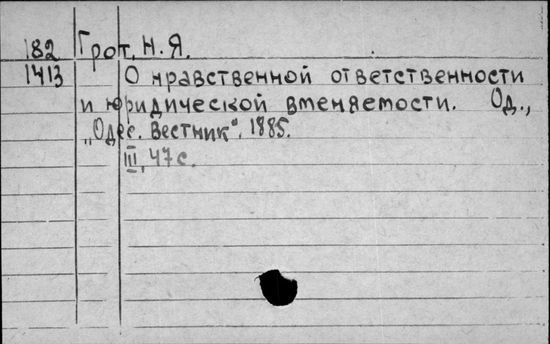 182 Грот, Н. Я.
1413 О нравственной ответственности
и юридической вменяемости. Од.,
„Одес. Вестник“. 1885.
III, 47 с.